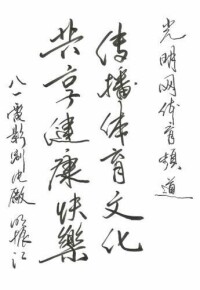 光明网体育频道
传播体育文化
共享健康快樂
八一電影制片廠 振江